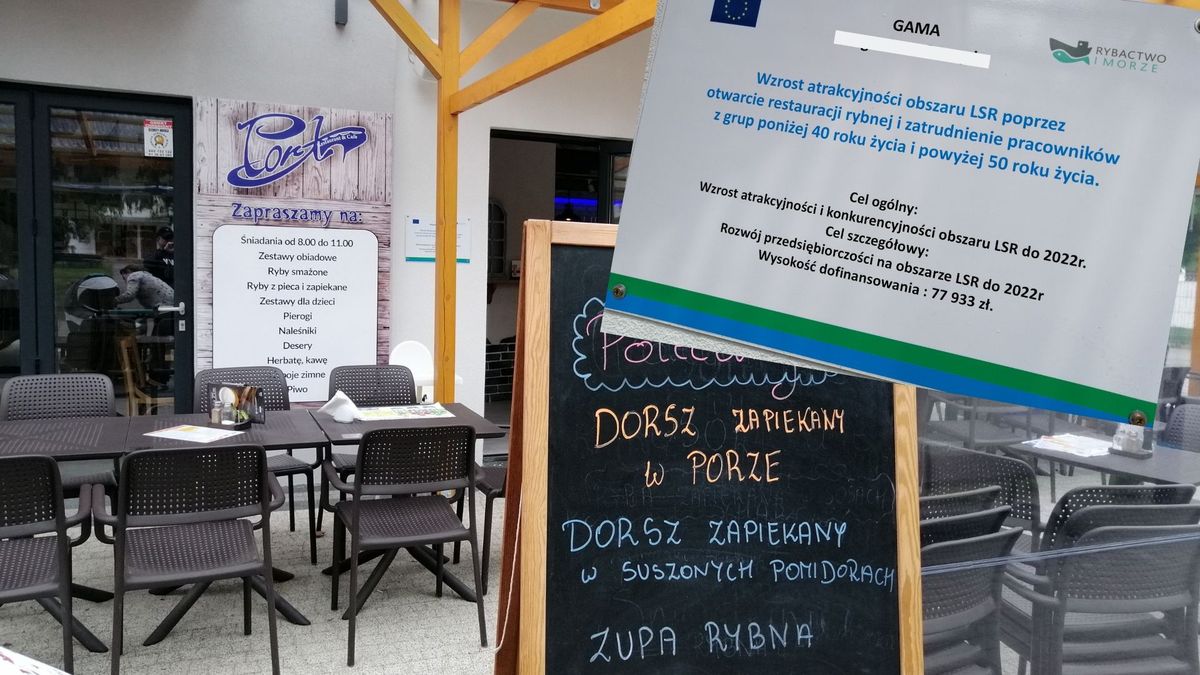 Port
Restaurant & Cafe
Zapraszamy na:
Śniadania od 8.00 do 11.00
Zestawy obiadowe
Ryby smażone
Ryby z pieca i zapiekane
Zestawy dla dzieci
Pierogi
Naleśniki
Desery
Herbatę, kawę
zimne
Piwo
GAMA
RYBACTWO
I MORZE
Wzrost atrakcyjności obszaru LSR poprzez
otwarcie restauracji rybnej i zatrudnienie pracowników
z grup poniżej 40 roku życia i powyżej 50 roku życia.
Cel ogólny:
Wzrost atrakcyjności i konkurencyjności obszaru LSR do 2022r.
Cel szczegółowy:
Rozwój przedsiębiorczości na obszarze LSR do 2022r
Wysokość dofinansowania : 77 933 zł.
DORSZ ZAPIEKANY
W PORZE
DORSZ ZAPIEKANY
W SUSZONYCH POMIDORACH
ZUPA RYBNA